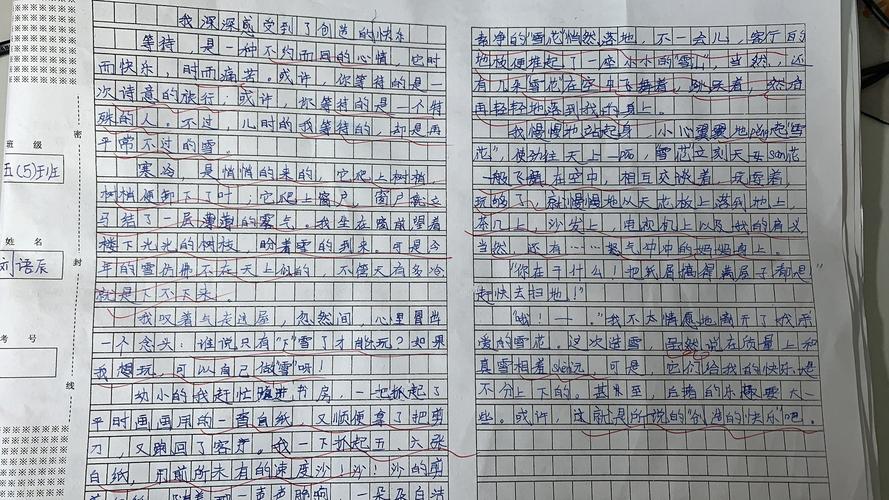 班级
五(5)班
姓名
刘语辰
考号
密
封
线
我深深感受到了创造的快乐
等待，是一种不约而同的心情，它时
而快乐，时而痛苦。或许，你等待的是一
次诗意的旅行；或许，你等待的是一个特
殊的人。不过，儿时的我等待的，却是再
平常不过的雪。
寒冷，是悄悄的来的，它爬上树梢，
树梢便卸下了叶；它爬上窗户，窗户立
马结了一层薄薄的雾气。我坐在窗前望着
楼下光光的树枝，盼着雪的到来，可是今
年的雪仿佛不在天上似的，不管天有多冷
就是下不下来。
我叹着气走进屋，忽然间，心里冒出
一个念头：谁说只有"下"雪了才能玩？如果
我想玩，可以自己"做"雪"呀！
幼小的我赶忙跑进书房，一把抓起了
平时画画用的一沓白纸，又顺便拿了把剪
刀，又跑回了客厅。我一下抓起五、六张
白纸，用前所未有的速度沙！沙！沙的剪
一朵朵白洁
素净的"雪花"悄然落地，不一会儿，客厅的
地板便堆起了一座小小的"雪山"，当然，还
有几朵"雪花"在空中飞舞着，跳跃着，然后
再轻轻地落到我的身上。
我慢慢地站起身，小心翼翼地pěng起"雪
花"，使劲往天上一pāo，"雪花"立刻天女sàn花
一般飞舞在空中，相互交谈着，玩耍着，
玩够了，就慢慢地从天花板上落到地上，
茶几上，沙发上，电视机上以及我的肩
当然，还有……怒气冲冲的妈妈身上。
"你在干什么！把纸屑搞得满屋子都是"
赶快去扫地！"
"哦！——。"我不太情愿地离开了我所
爱的雪花。这次造雪，虽然说在质量上和
真雪相差shèn远，可是，它们给我的快乐是
不分上下的。甚至，自造的乐趣要大一
些。或许，这就是所说的"创造的快乐"吧。